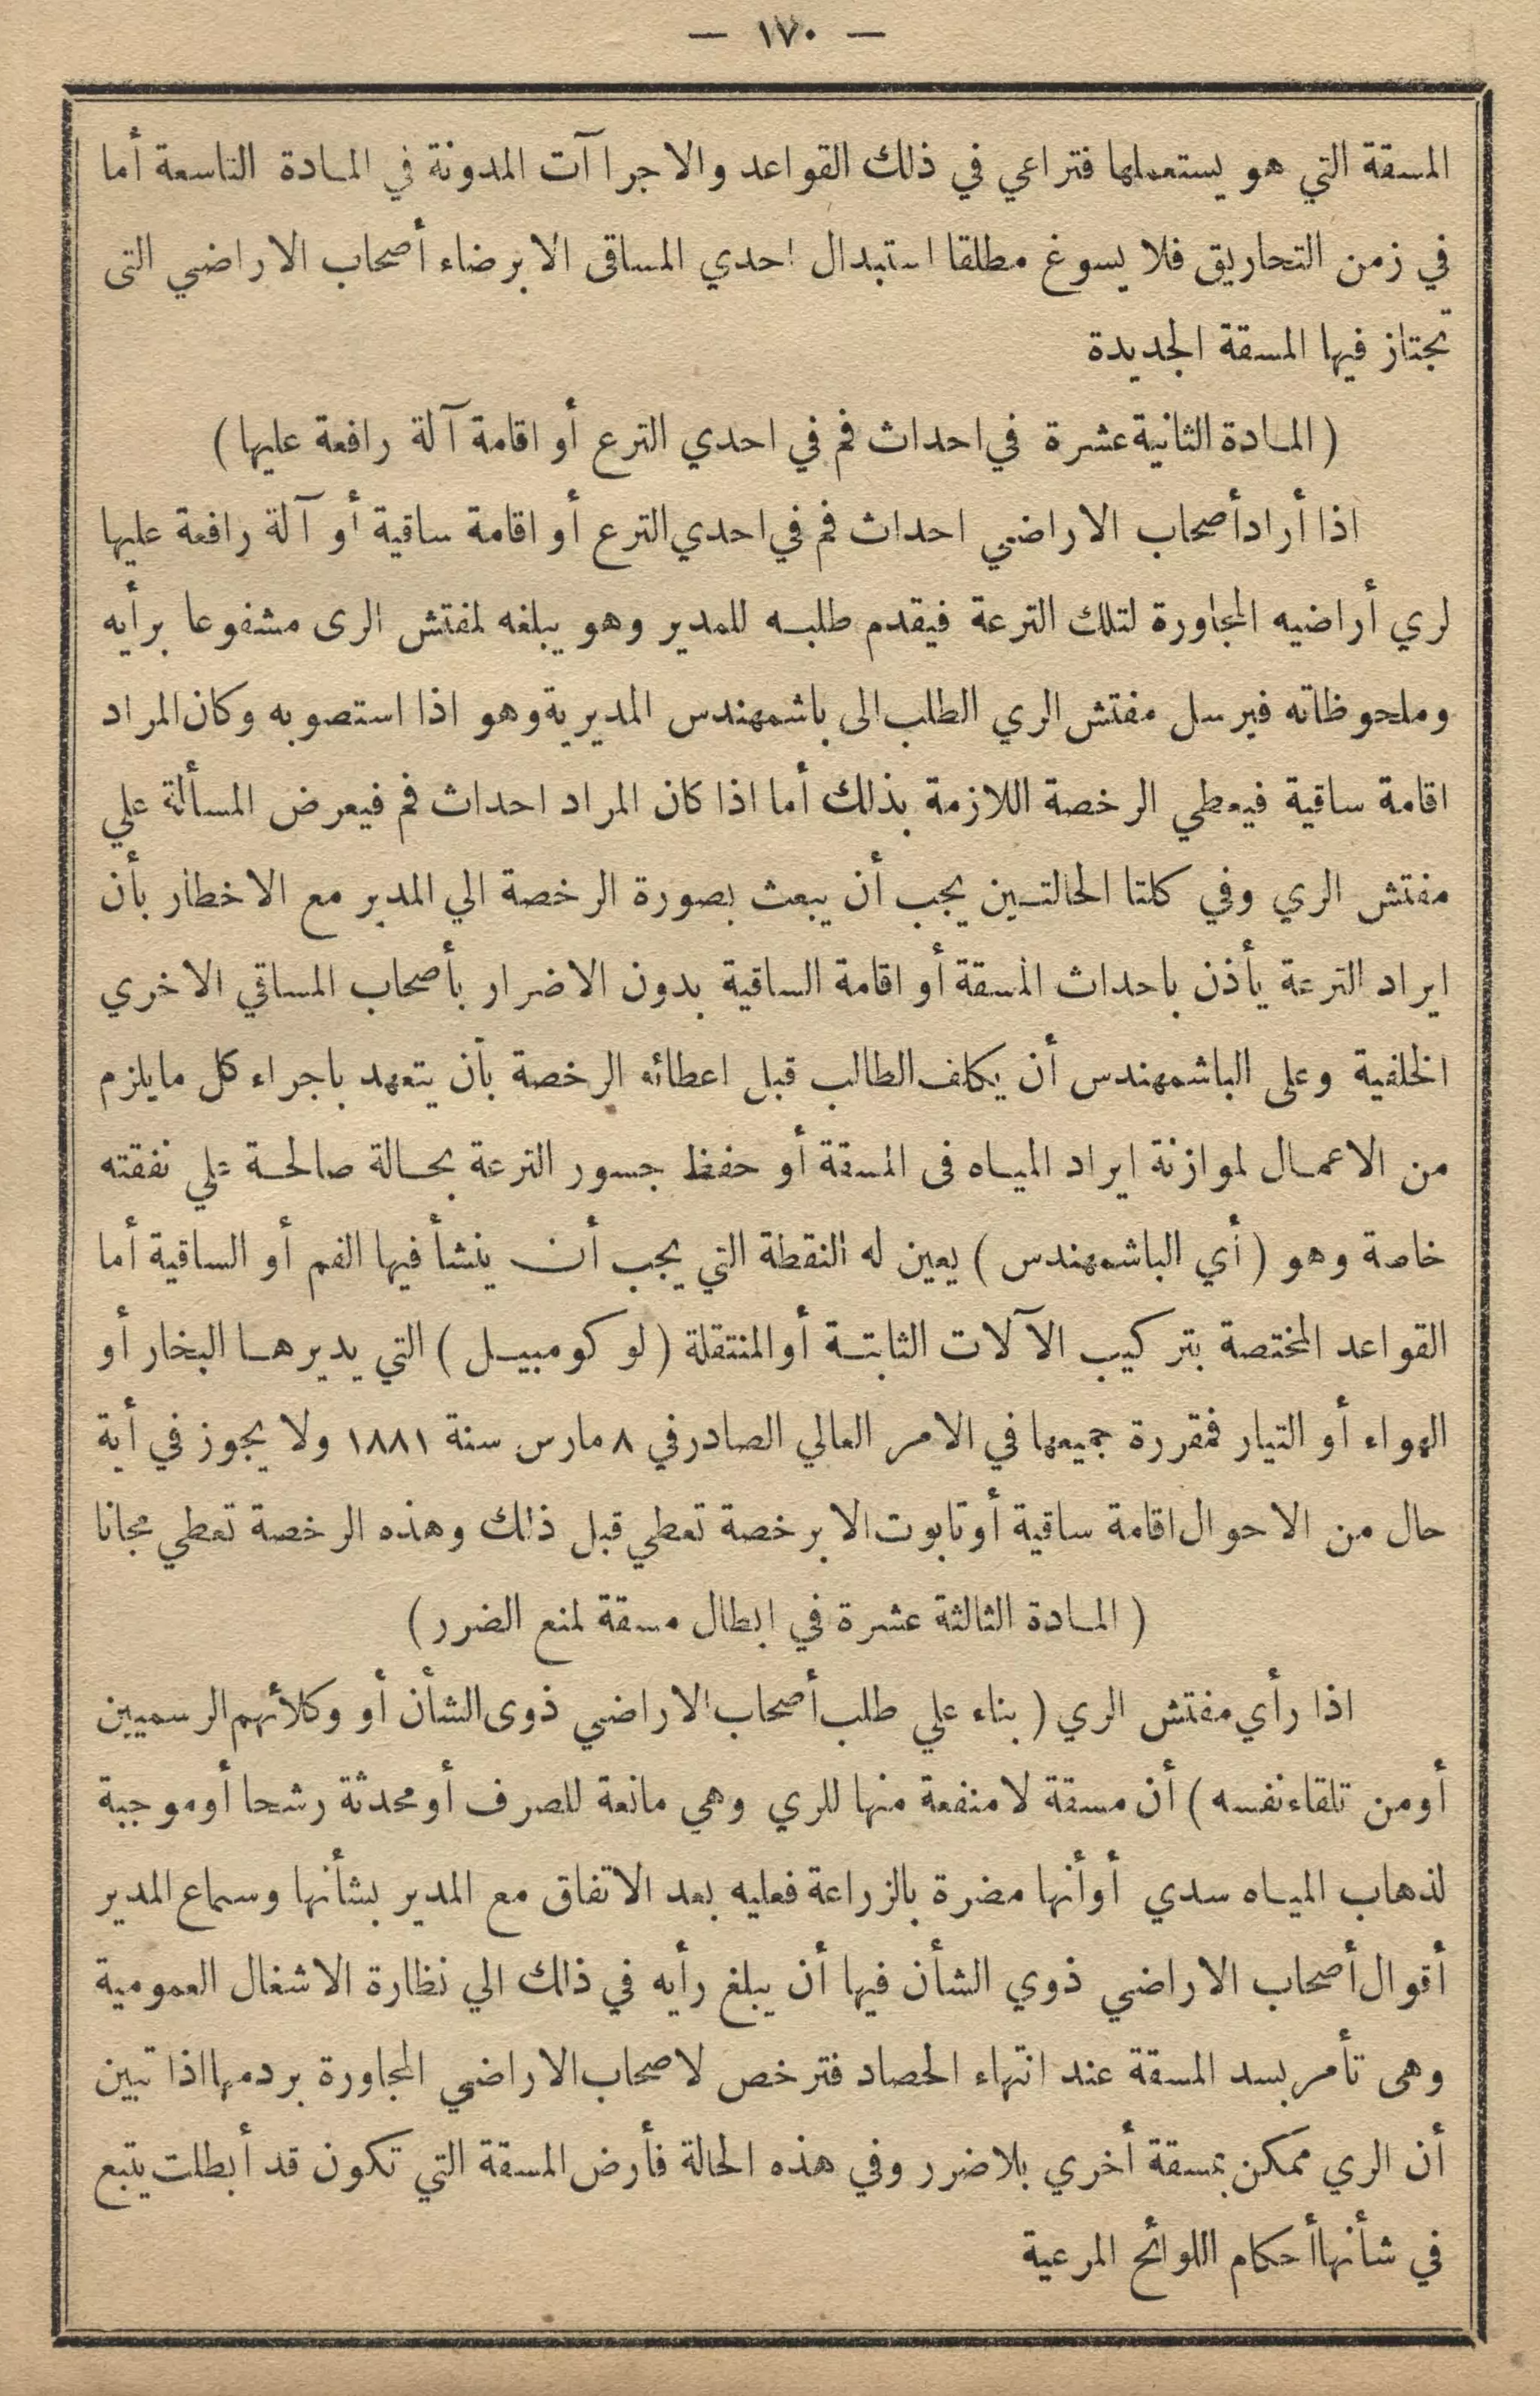 — ١٧٠ —
المسقة التي هو يستعملها فتراعي في ذلك القواعد والاجراآت المدونة في المادة التاسعة أما
في زمن التحاريق فلا يسوغ مطلقا استبدال احدي المساقى الا برضاء أصحاب الاراضي التى
تجتاز فيها المسقة الجديدة
( المادة الثانية عشرة في احداث فم في احدي الترع أو اقامة آلة رافعة عليها )
اذا أراد أصحاب الاراضي احداث فم في احدي الترع أو اقامة ساقية أو آلة رافعة عليها
لري أراضيه المجاورة لتلك الترعة فيقدم طلبه للمدير وهو يبلغه لمفتش الرى مشفوعا برأيه
وملحوظاته فيرسل مفتش الري الطلب الى باشمهندس المديرية وهو اذا استصوبه وكان المراد
اقامة ساقية فيعطي الرخصة اللازمة بذلك أما اذا كان المراد احداث فم فيعرض المسألة علي
مفتش الري وفي كلتا الحالتين يجب أن يبعث بصورة الرخصة الي المدير مع الاخطار بأن
ايراد الترعة يأذن باحداث المسقة أو اقامة الساقية بدون الاضرار بأصحاب المساقي الاخري
الخلفية وعلى الباشمهندس أن يكلف الطالب قبل اعطائه الرخصة بأن يتعهد باجراء كل مايلزم
من الاعمال لموازنة ايراد المياه فى المسقة أو حفظ جسور الترعة بحالة صالحة علي نفقته
خاصة وهو ( أي الباشمهندس ) يعين له النقطة التي يجب أن ينشأ فيها الفم أو الساقية أما
القواعد المختصة بتركيب الآلات الثابتة أو المنتقلة ( لوكومبيل ) التي يديرها البخار أو
الهواء أو التيار فمقررة جميعها في الامر العالي الصادر في ٨ مارس سنة ١٨٨١ ولا يجوز في أية
حال من الاحوال اقامة ساقية أو تابوت الا برخصة تعطي قبل ذلك وهذه الرخصة تعطي مجانا
( المادة الثالثة عشرة في ابطال مسقة لمنع الضرر )
اذا رأي مفتش الري ( بناء علي طلب أصحاب الاراضي ذوى الشأن أو وكلائهم الرسميين
أومن تلقاء نفسه ) أن مسقة لا منفعة منها للري وهي مانعة للصرف أو محدثة رشحا أو موجبة
لذهاب المياه سدي أو أنها مضرة بالزراعة فعليه بعد الاتفاق مع المدير بشأنها وسماع المدير
أقوال أصحاب الاراضي ذوي الشأن فيها أن يبلغ رأيه في ذلك الي نظارة الاشغال العمومية
وهى تأمر بسد المسقة عند انتهاء الحصاد فترخص لاصحاب الاراضي المجاورة بردمها اذا تبين
أن الري ممكن بمسقة أخري بلا ضرر وفي هذه الحالة فأرض المسقة التي تكون قد أبطلت يتبع
في شأنها أحكام اللوائح المرعية